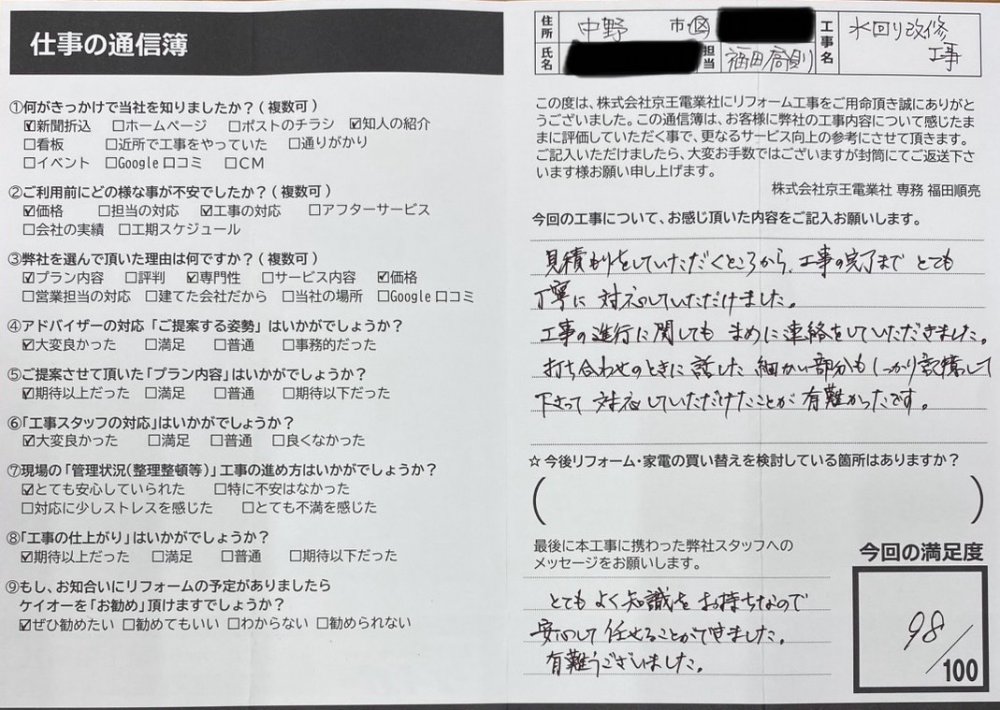 仕事の通信簿
①何がきっかけで当社を知りましたか？(複数可)
☑新聞折込 □ホームページ □ポストのチラシ ☑知人の紹介
□看板 □近所で工事をやっていた □通りがかり
□イベント □Google口コミ □CM
②ご利用前にどの様な事が不安でしたか？(複数可)
☑価格 □担当の対応 ☑工事の対応 □アフターサービス
□会社の実績 □工期スケジュール
③弊社を選んで頂いた理由は何ですか？(複数可)
☑プラン内容 □評判 ☑専門性 □サービス内容 ☑価格
□営業担当の対応 □建てた会社だから □当社の場所 □Google口コミ
④アドバイザーの対応「ご提案する姿勢」はいかがでしょうか？
☑大変良かった □満足 □普通 □事務的だった
⑤ご提案させて頂いた「プラン内容」はいかがでしょうか？
☑期待以上だった □満足 □普通 □期待以下だった
⑥「工事スタッフの対応」はいかがでしょうか？
☑大変良かった □満足 □普通 □良くなかった
⑦現場の「管理状況(整理整頓等)」工事の進め方はいかがでしょうか？
☑とても安心していられた □特に不安はなかった
□対応に少しストレスを感じた □とても不満を感じた
⑧「工事の仕上がり」はいかがでしょうか？
☑期待以上だった □満足 □普通 □期待以下だった
⑨もし、お知合いにリフォームの予定がありましたら
ケイオーを「お勧め」頂けますでしょうか？
☑ぜひ勧めたい □勧めてもいい □わからない □勧められない
住所 中野 市区
氏名 担当 福田
工事名 水回り改修
工事
この度は、株式会社京王電業社にリフォーム工事をご用命頂き誠にありがと
うございました。この通信簿は、お客様に弊社の工事内容について感じたま
まに評価していただく事で、更なるサービス向上の参考にさせて頂きます。
ご記入いただけましたら、大変お手数ではございますが封筒にてご返送下さ
います様お願い申し上げます。
株式会社京王電業社 専務 福田順亮
今回の工事について、お感じ頂いた内容をご記入お願いします。
見積もりをしていただくところから、工事の完了まで とても
丁寧に 対応していただけました。
工事の進行に関しても まめに連絡をしていただきました。
打ち合わせのときに 話した 細かい部分も しっかり記憶して
下さって 対応していただけたことが 有難かったです。
☆今後リフォーム・家電の買い替えを検討している箇所はありますか？
( )
最後に本工事に携わった弊社スタッフへの
メッセージをお願いします。
とても よく知識を お持ちなので
安心して 任せることができました。
有難うございました。
今回の満足度
98/100